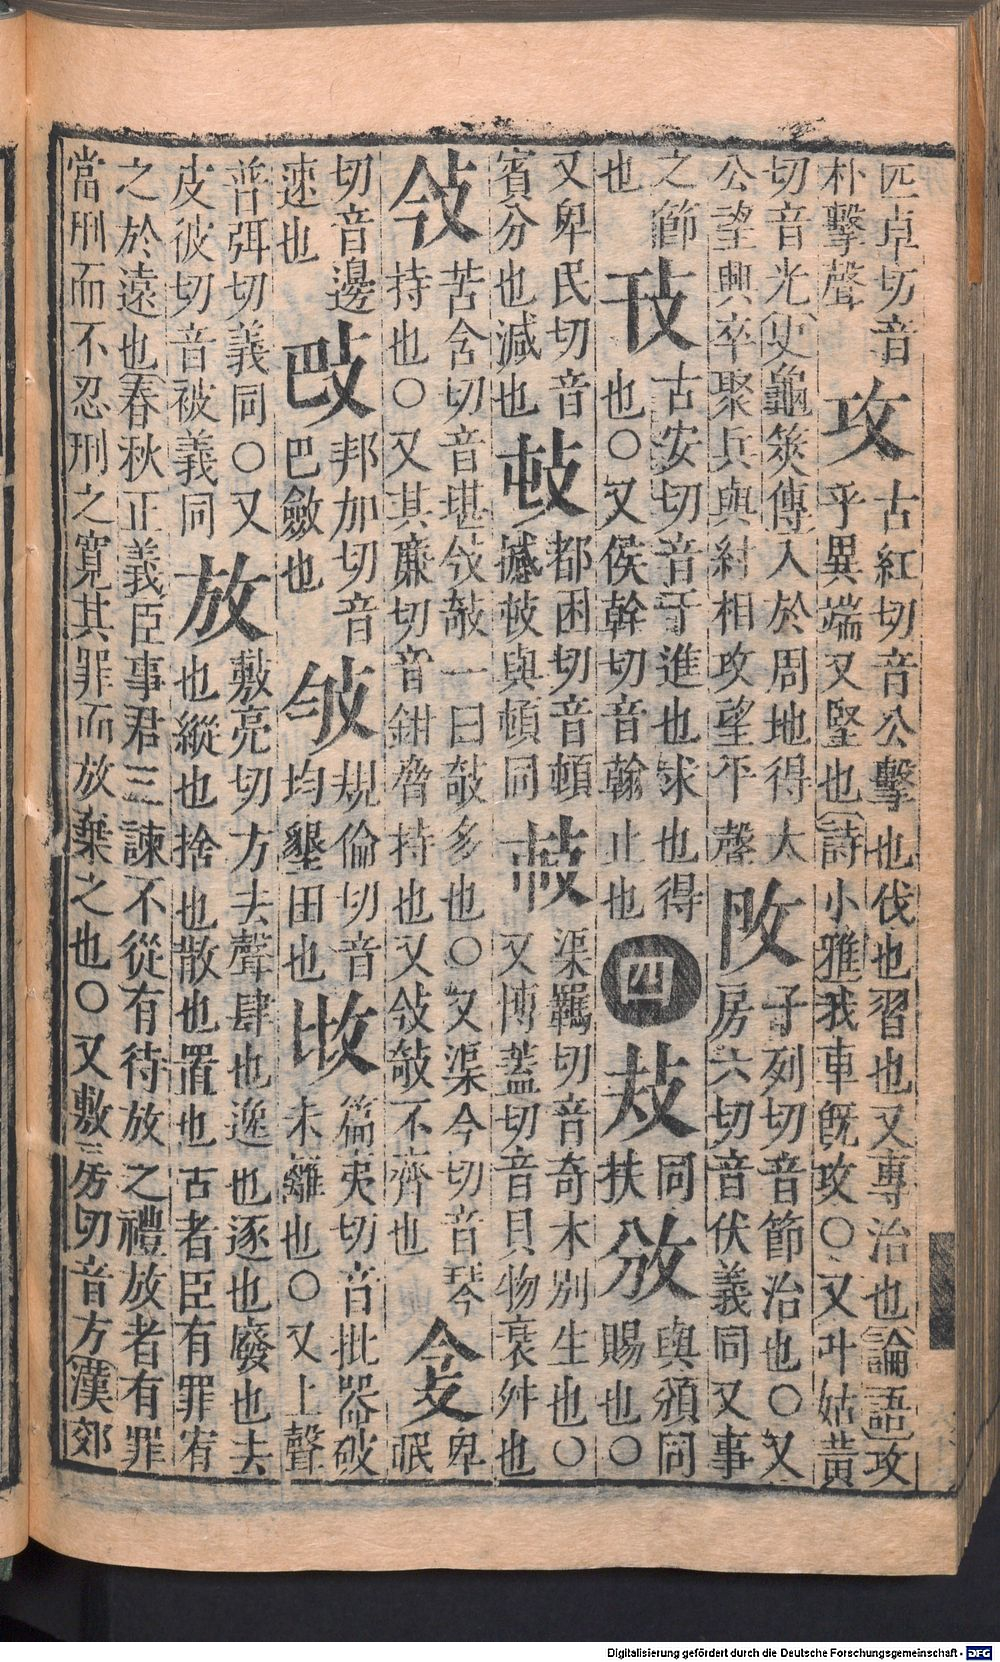 匹卓切音 攻 古紅切音公擊也伐也習也又專治也論語攻
朴擊聲 乎異端又堅也詩小雅我車旣攻○又叶姑黃
切音光史龜筴傳入於周地得太 子列切音節治也○又
公望興卒聚兵與紂相攻望平聲 房六切音伏義同又事
之節 攼 古安切音干進也求也得 同 攽 與頒同
也 也○又侯幹切音翰止也 四 扶 賜也○
又卑民切音 都困切音頓 渠羈切音奇木別生也○
賓分也減也 撼 與頓同 又博蓋切音貝物衰舛也
苦含切音堪 敧一曰敧多也○又渠今切音琴 卑
持也○又其廉切音鉗脅持也又 不齊也 㪁 眠
切音邊 邦加切音 規倫切音 篇夷切音批器破
速也 巴斂也 均 墾田也 未離也○又上聲
普弭切義同○又 敷亮切方去聲肆也逸也逐也廢也去
皮彼切音被義同 放 也縱也捨也散也置也古者臣有罪宥
之於遠也春秋正義臣事君三諫不從有待放之禮放者有罪
當刑而不忍刑之寬其罪而放棄之也○又敷房切音方漢郊
Digitalisierung gefördert durch die Deutsche Forschungsgemeinschaft - DFG